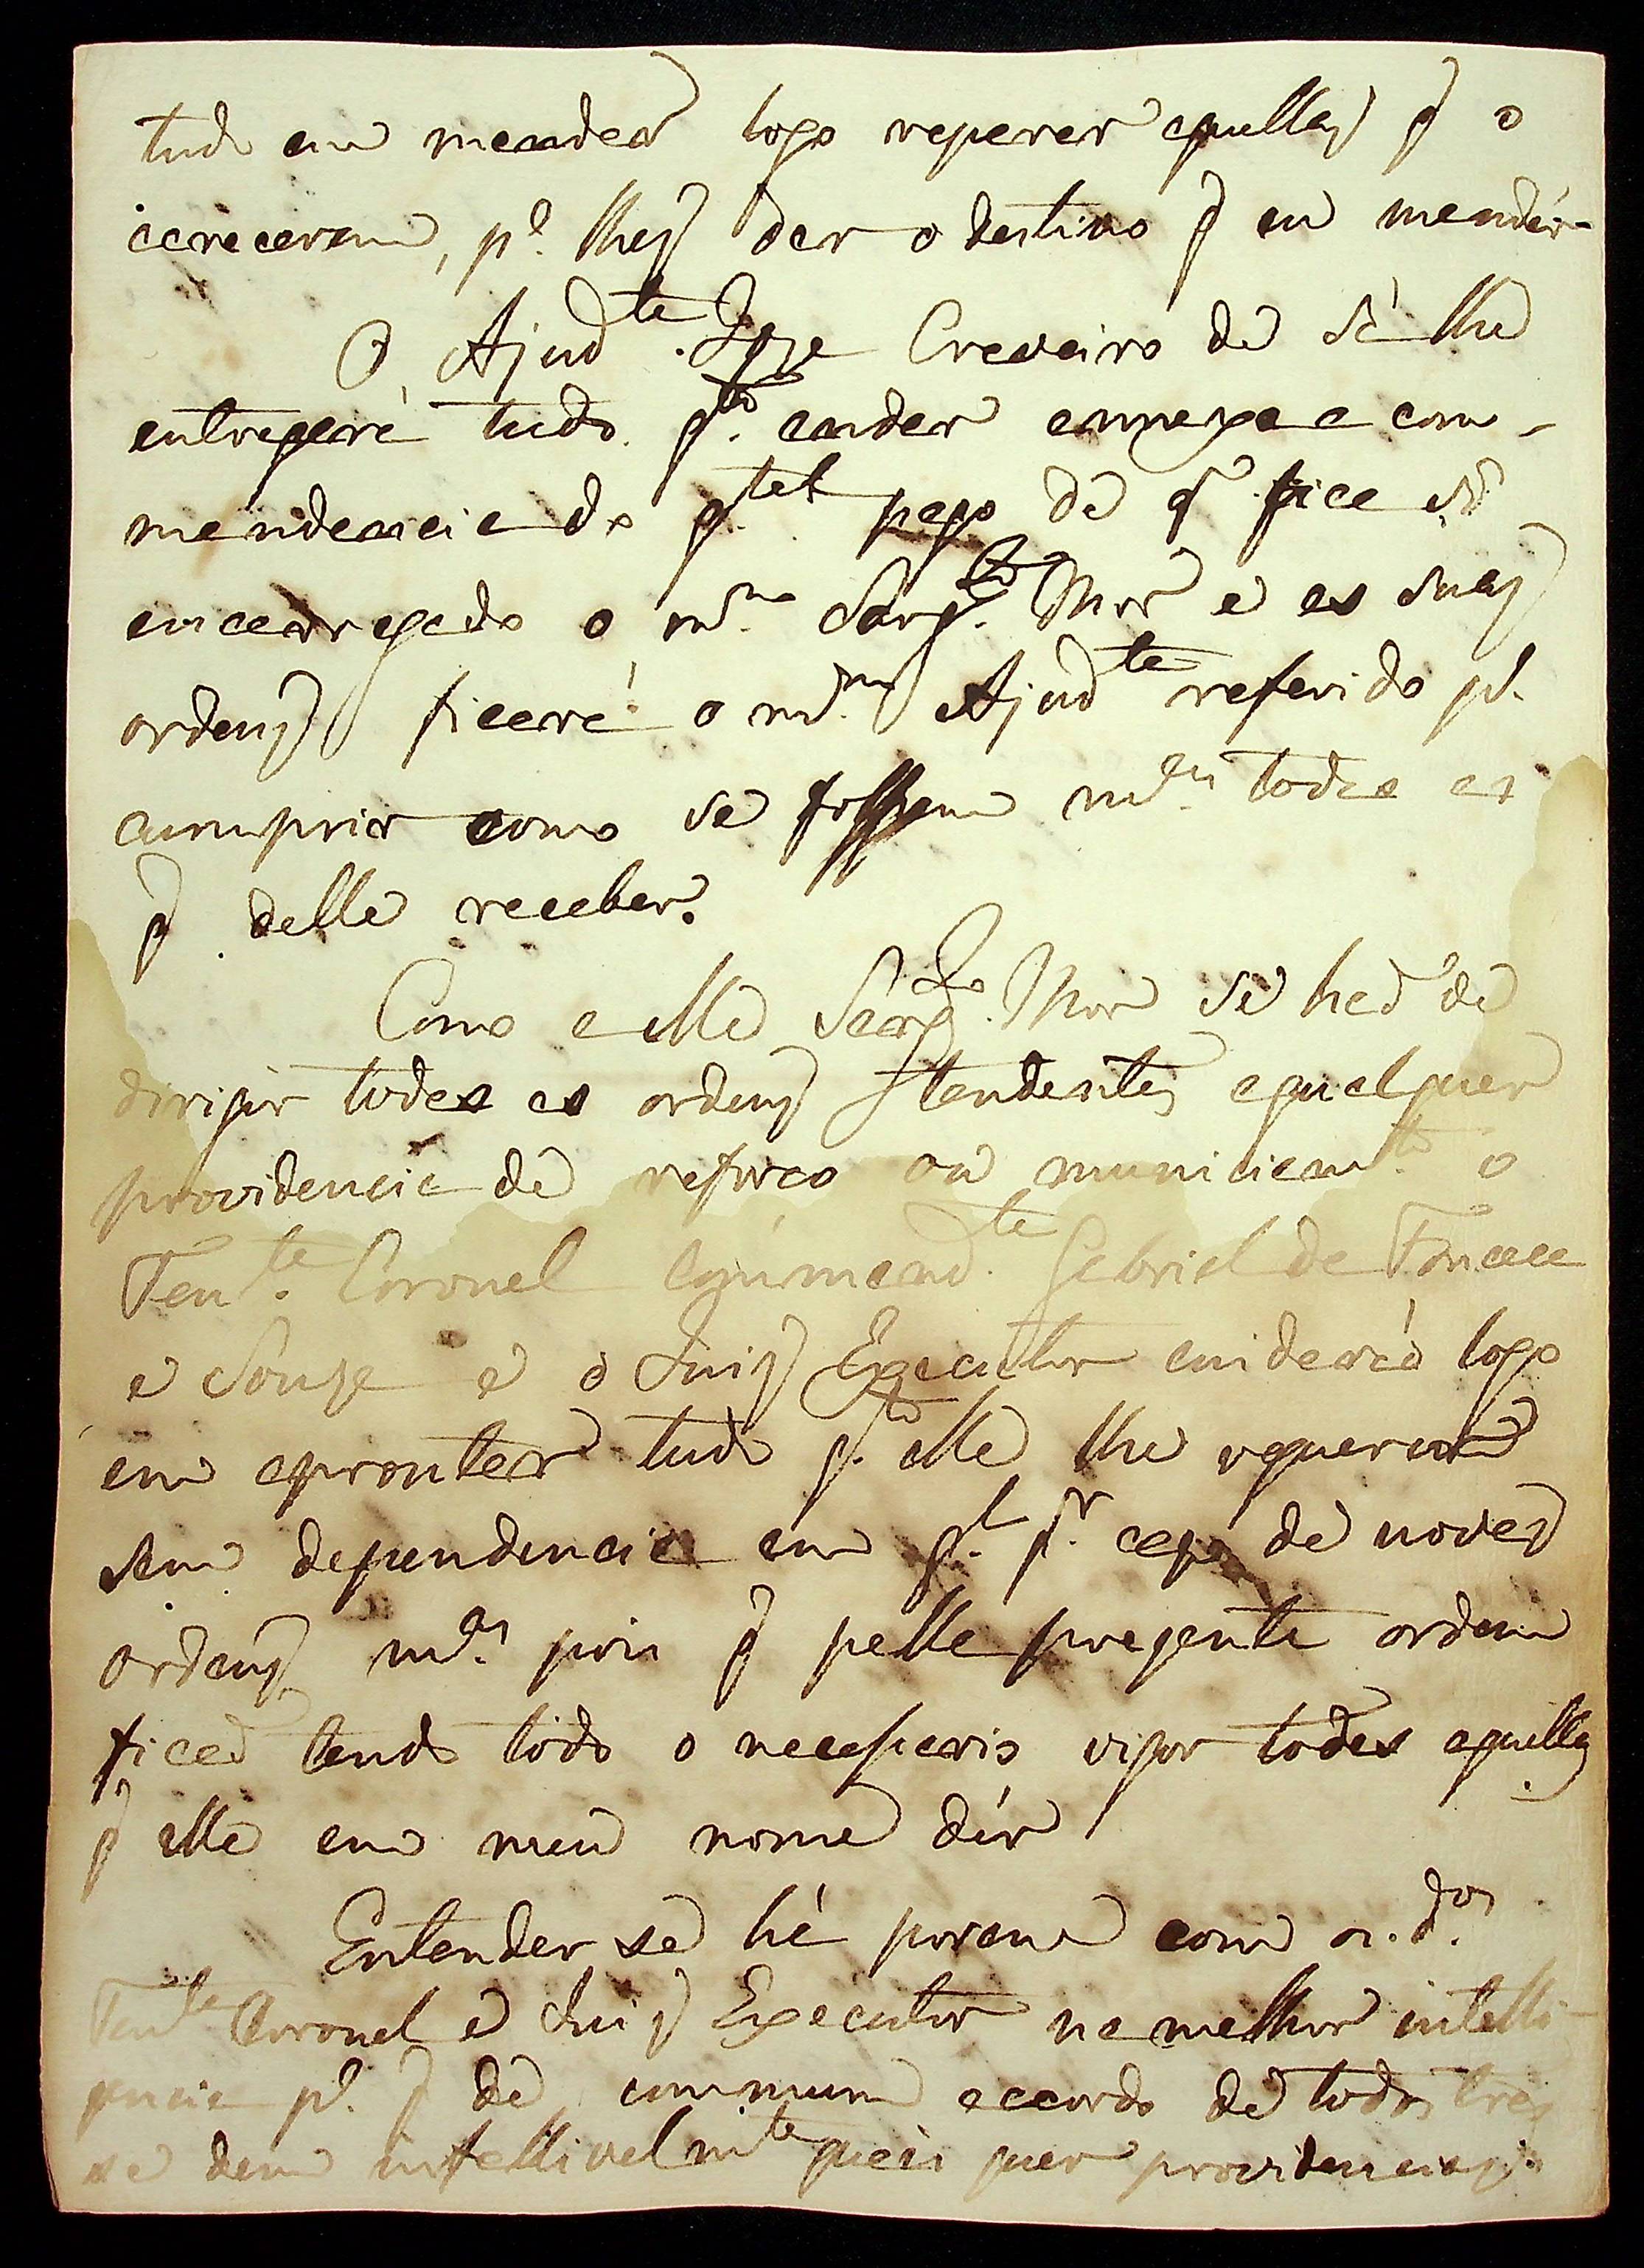 tudo em mandar logo reparar aquellas q̃ o
carecerem, p.ᵃ lhes dar o destino q̃ eu mandár.
O Ajud.ᵗᵉ Joze Craveiro de Sá lhe
entregará tudo q.ᵗᵒ andar annexo a com-
mandancia do q.ᵗᵉˡ pago de q̃ fica Sñr
encarregado o m.ᵐᵒ Sarg.ᵗᵒ Mor e as suas
ordens ficará o m.ᵐᵒ Ajud.ᵗᵉ referido p.ᵃ
cumprir como se fossem m.ᵃˢ todas as
q̃ delle receber.
Como a elle Sarg.ᵗᵒ Mor se hão de
dirigir todas as ordens tendentes aqualquer
providencia de reforço ou municiam.ᵗᵒ o
Ten.ᵗᵉ Coronel Commend.ᵗᵉ Gabriel da Fonceca
e Souza e o Juiz Executor cuidarão logo
em aprontar tudo q.ᵗᵒ elle lhe requerer
sem dependencia em q.ˡ q.ʳ cazo de novas
ordens m.ᵃˢ pois q̃ pella prezente ordem
ficão tendo todo o necessario vigor todas aquellas
q̃ elle em meu nome dér
Entender se há porem com os d.ᵒˢ
Ten.ᵗᵉ Coronel e Juiz Executor na melhor intelli-
gencia p.ᵃ q̃ de commum accordo de todos tres
se dem infallivelm.ᵗᵉ quais quer providencias